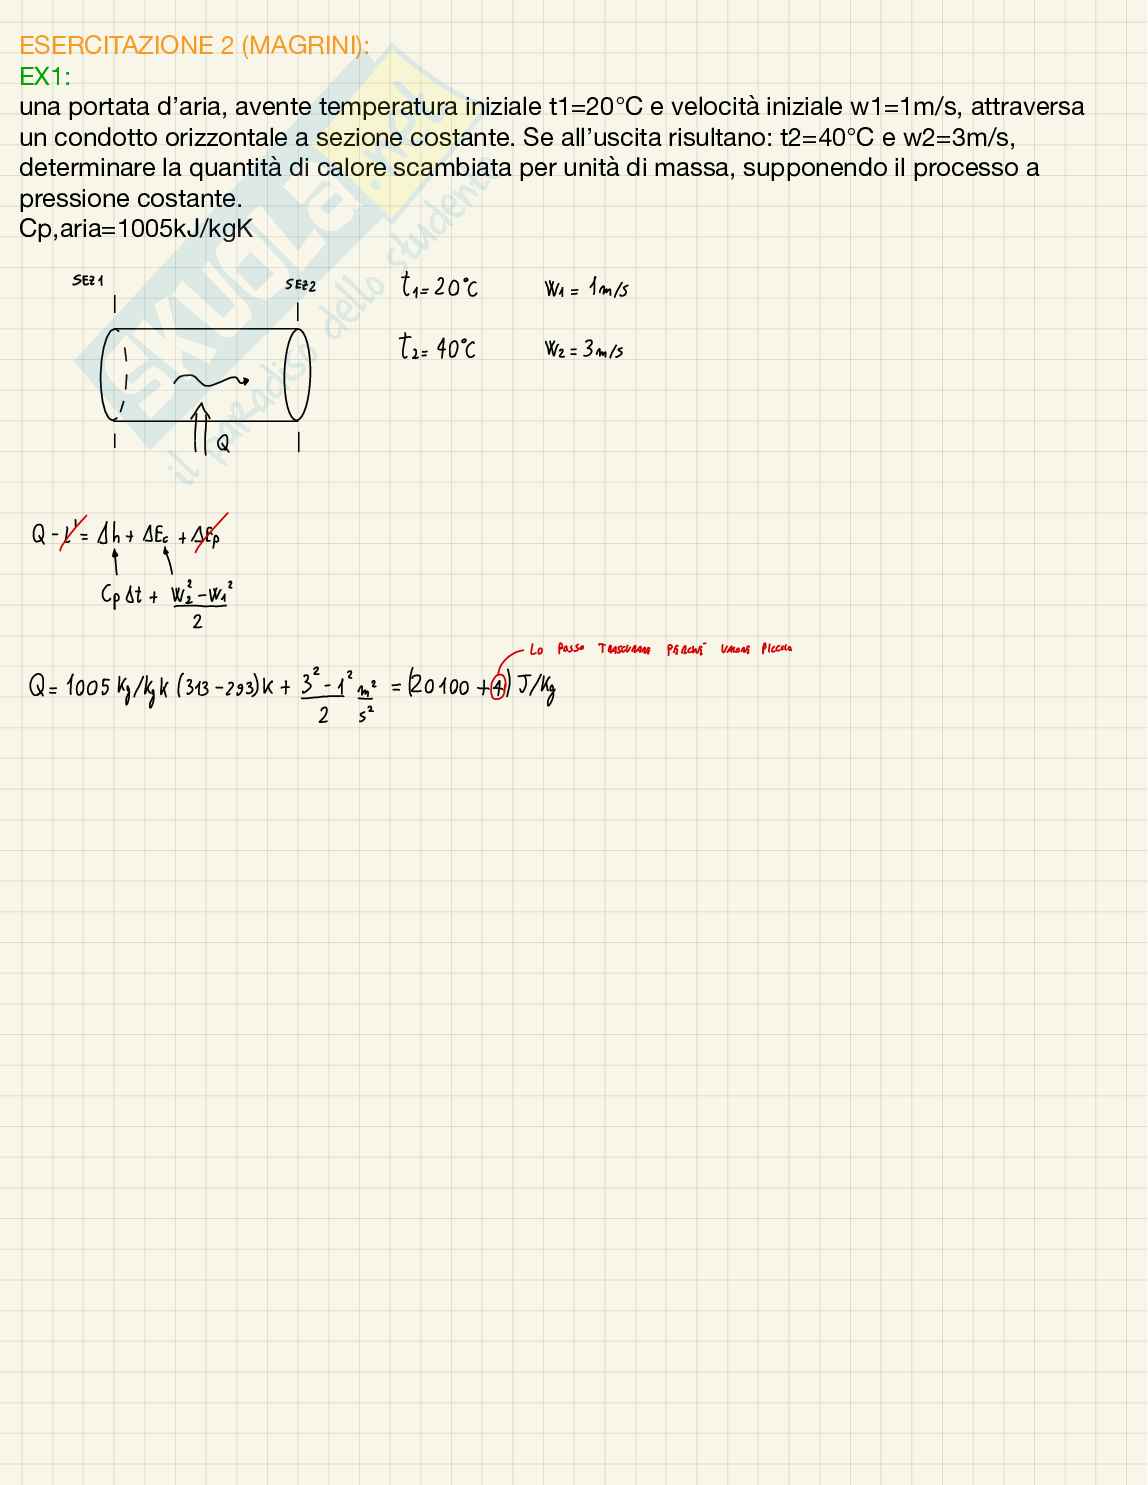 ESERCITAZIONE 2 (MAGRINI):
EX1:
una portata d'aria, avente temperatura iniziale t1=20°C e velocità iniziale w1=1m/s, attraversa
un condotto orizzontale a sezione costante. Se all'uscita risultano: t2=40°C e w2=3m/s,
determinare la quantità di calore scambiata per unità di massa, supponendo il processo a
pressione costante.
Cp,aria=1005kJ/kgK
SKUOLA.net
il paradiso dello studente
SEZ1
SEZ2
t₁=20°C w₁=1m/s
t₂=40°C w₂=3m/s
Q
Q-L'=Δh+ΔEc+ΔEp
CpΔt+ (w₂²-w₁²)/2
Lo posso trascurare perché valore piccolo
Q=1005 Kg/KgK (313-293)K + (3²-1²)/2 m²/s² = (20100+4) J/Kg